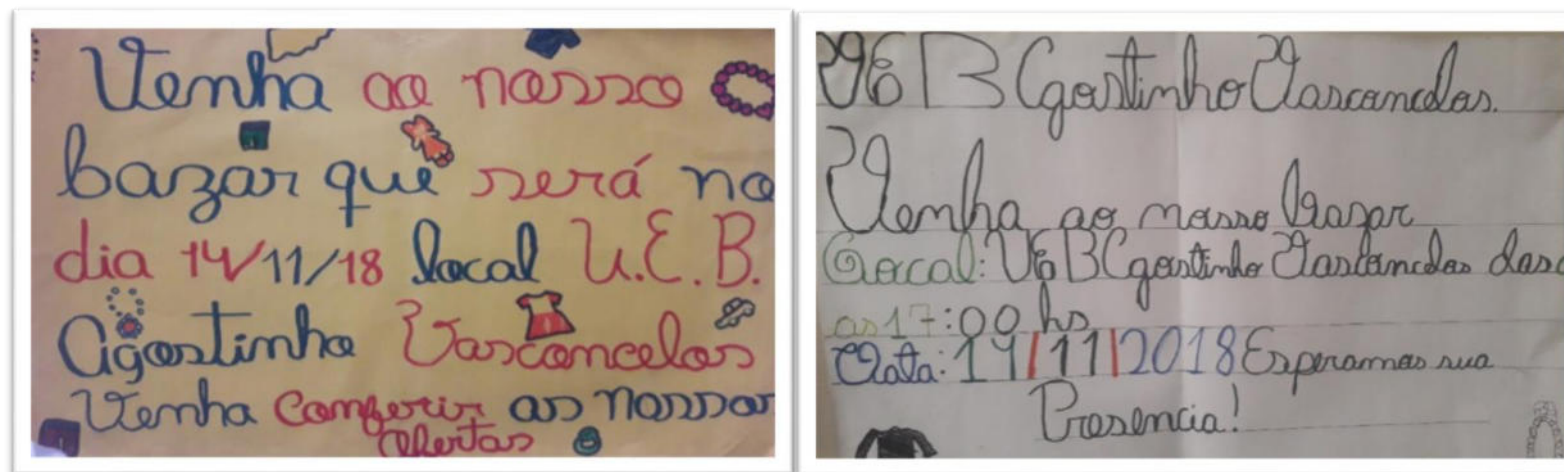 Venha ao nosso
bazar que será no
dia 14/11/18 local U.E.B.
Agostinho Vasconcelos
Venha conferir as nossas
ofertas
UEB Agostinho Vasconcelos.
Venha ao nosso Bazar
Local: UEB Agostinho Vasconcelos das
as 17:00 hs
Data: 14/11/2018 Esperamos sua
Presencia!